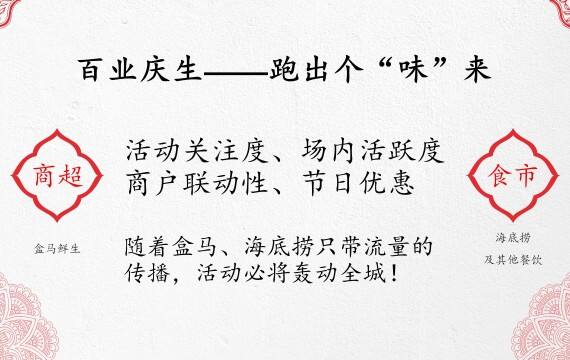 百业庆生——跑出个“味”来
活动关注度、场内活跃度
商户联动性、节日优惠
商超
食市
盒马鲜生
海底捞
及其他餐饮
随着盒马、海底捞只带流量的
传播，活动必将轰动全城！